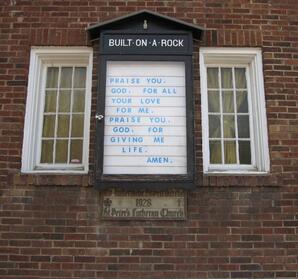 BUILT-ON-A-ROCK
PRAISE YOU,
GOD, FOR ALL
YOUR LOVE
FOR ME.
PRAISE YOU,
GOD, FOR
GIVING ME
LIFE.
AMEN.
1928
St Peter's Lutheran Church